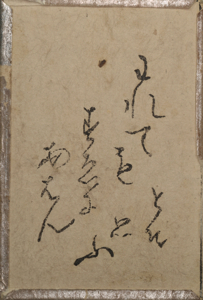 われても
すゑに
あはん
とそ
思ふ